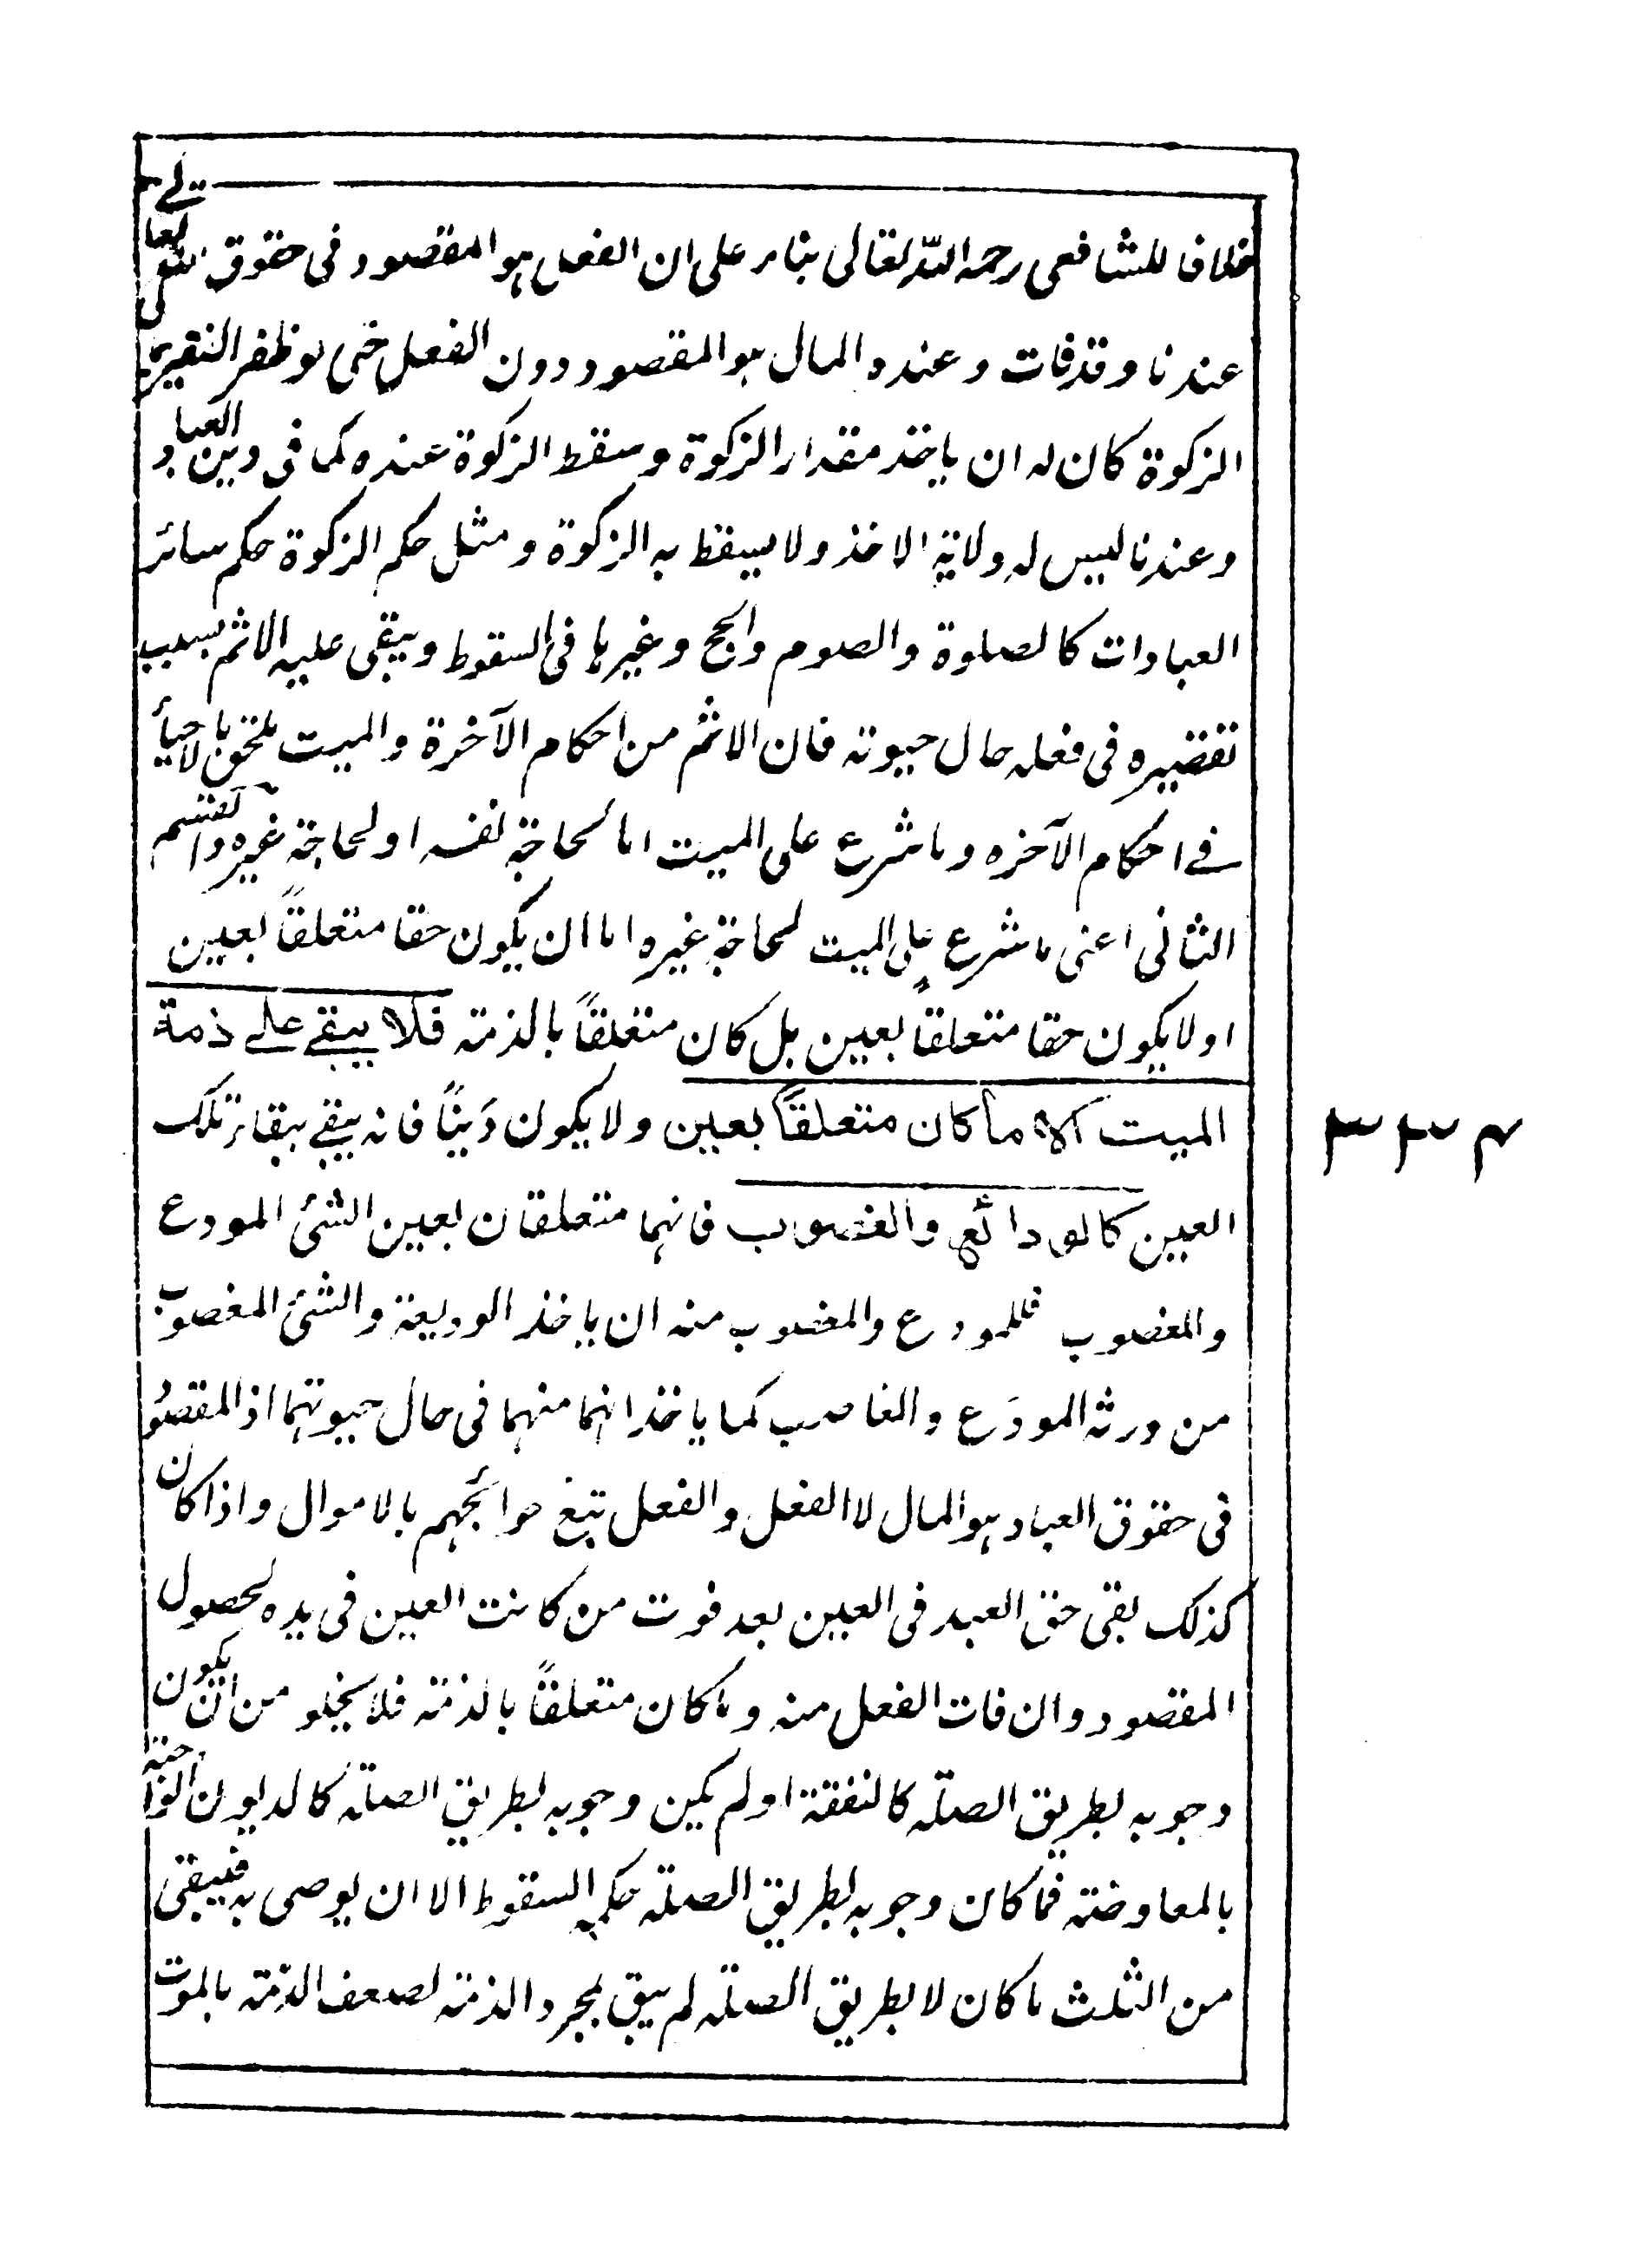 خلافا للشافعى رحمه الله تعالى بناء على ان الفعل هو المقصود فى حقوق الله تعالى
عندنا وقد فات وعنده المال هو المقصود دون الفعل حتى لو ظفر الفقير بمال
الزكوة كان له ان ياخذ مقدار الزكوة وسقط الزكوة عنده كما فى دين العباد
وعندنا ليس له ولاية الاخذ ولا يسقط به الزكوة ومثل حكم الزكوة حكم سائر
العبادات كالصلوة والصوم والحج وغيرها فى السقوط ويبقى عليه الاثم بسبب
تقصيره فى فعله حال حيوته فان الاثم من احكام الآخرة والميت ملحق بالاحياء
فے احكام الآخره وما شرع على الميت اما لحاجة نفسه او لحاجة غيره والقسم
الثانى اعنى ما شرع على الميت لحاجة غيره اما ان يكون حقا متعلقاً بعين
اولا يكون حقا متعلقاً بعين بل كان متعلقاً بالذمة فلا يبقے علے ذمة
الميت الا ما كان متعلقاً بعين ولا يكون دَيناً فانه يبقے ببقاء تلك
العين كالودائع والغصوب فانهما متعلقان بعين الشئ المودع
والمغصوب فللمودع والمغصوب منه ان ياخذ الوديعة والشئ المغصوب
من ورثه المودَع والغاصب كما ياخذانهما منهما فى حال حيوتهما اذ المقصود
فى حقوق العباد هو المال لا الفعل والفعل تبع حوائجهم بالاموال واذا كان
كذلك بقى حق العبد فى العين بعد فوت من كانت العين فى يده لحصول
المقصود وان فات الفعل منه وما كان متعلقاً بالذمة فلا يخلو من ان يكون
وجوبه بطريق الصلة كالنفقة او لم يكين وجوبه بطريق الصلة كالديون الواجبة
بالمعاوضة فما كان وجوبه بطريق الصلة حكمه السقوط الا ان يوصى به فيبقى
من الثلث ما كان لا بطريق الصلة لم يبق بمجرد الذمة لضعف الذمة بالموت
٣٣٤